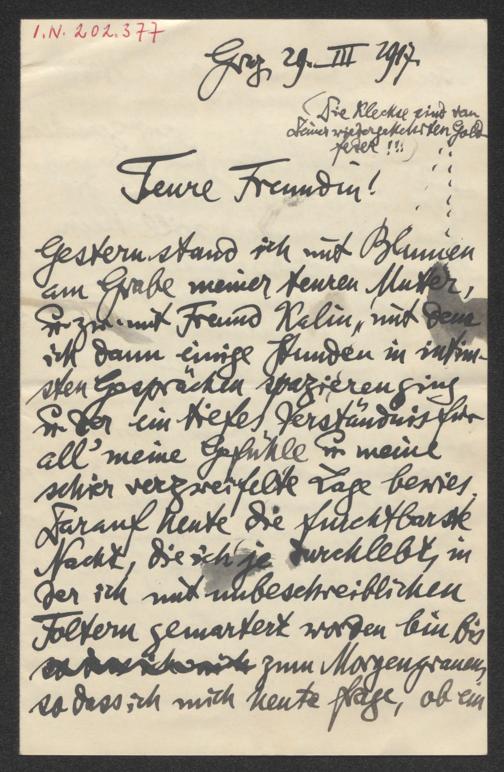 I.N. 202.377
Graz, 29. III 1917.
(Die Kleckse sind von
Deiner wiedergekehrten Gold
feder!!!)
Teure Freundin!
Gestern stand ich mit Blumen
am Grabe meiner teuren Mutter,
u. zw. mit Freund Kalin, mit dem
ich dann einige Stunden in intim-
sten Gesprächen spazierenging
u. der ein tiefes Verständnis für
all' meine Gefühle u. meine
schier verzweifelte Lage bewies.
Darauf heute die furchtbarste
Nacht, die ich je durchlebt, in
der ich mit unbeschreiblichen
Foltern gemartert worden bin bis
zum Morgengrauen,
so dass ich mich heute frage, ob ein